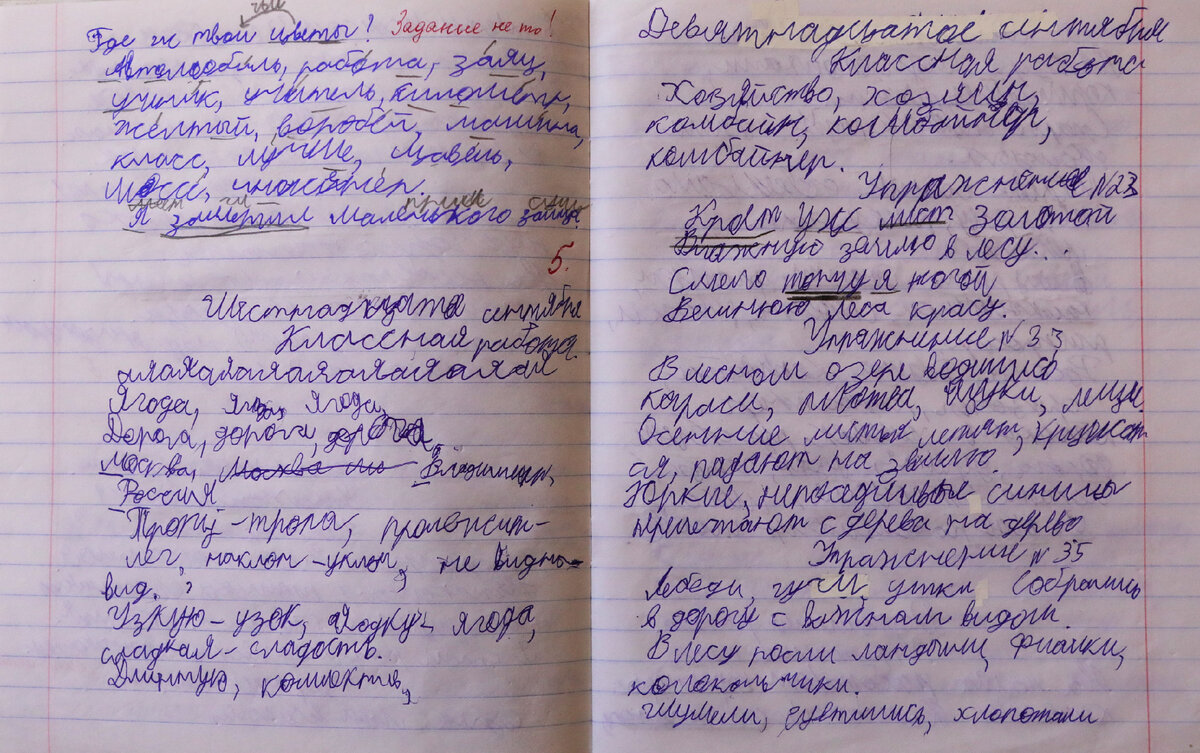 чьи
Где ж твои цветы? Задание не то!
Автомобиль, работа, заяц,
ученик, учитель, километр,
жёлтый, воробей, машина,
класс, лучше, щавель,
шоссе, инженер.
гл прил сущ
Я заметил маленького зайца.
5.
Шестнадцата сентября
Классная работа.
яаяаяаяаяаяаяаяаяая
Ягода, ягода, ягода,
Дорога, дорога, дорога,
Москва, Москва Владимир,
Россия
Тропу - тропа, проложит -
лег, наклон - уклон, не видно -
вид. ?
Узкую - узок, ягодку - ягода,
сладкая - сладость.
Длинную,
Девятнадцатое синтября
Классная работа
Хозяйство, хозяин,
комбайн, комбайнёр,
комбайнер.
Упражнение №23
Кроет уж лист золотой
Влажную землю в лесу...
Смело топчу я ногой
Вешнюю леса красу.
Упражнение №33
В лесном озере водились
караси, плотва, щуки, лещи.
Осенние листья летят, кружат
ся, падают на землю.
Юркие, непоседливые синицы
перелетают с дерева на дерево
Упражнение №35
Лебеди, гуси, утки собрались
в дорогу с важном видом.
В лесу росли ландыши, фиалки,
колокольчики.
Шумели, суетились, хлопотали